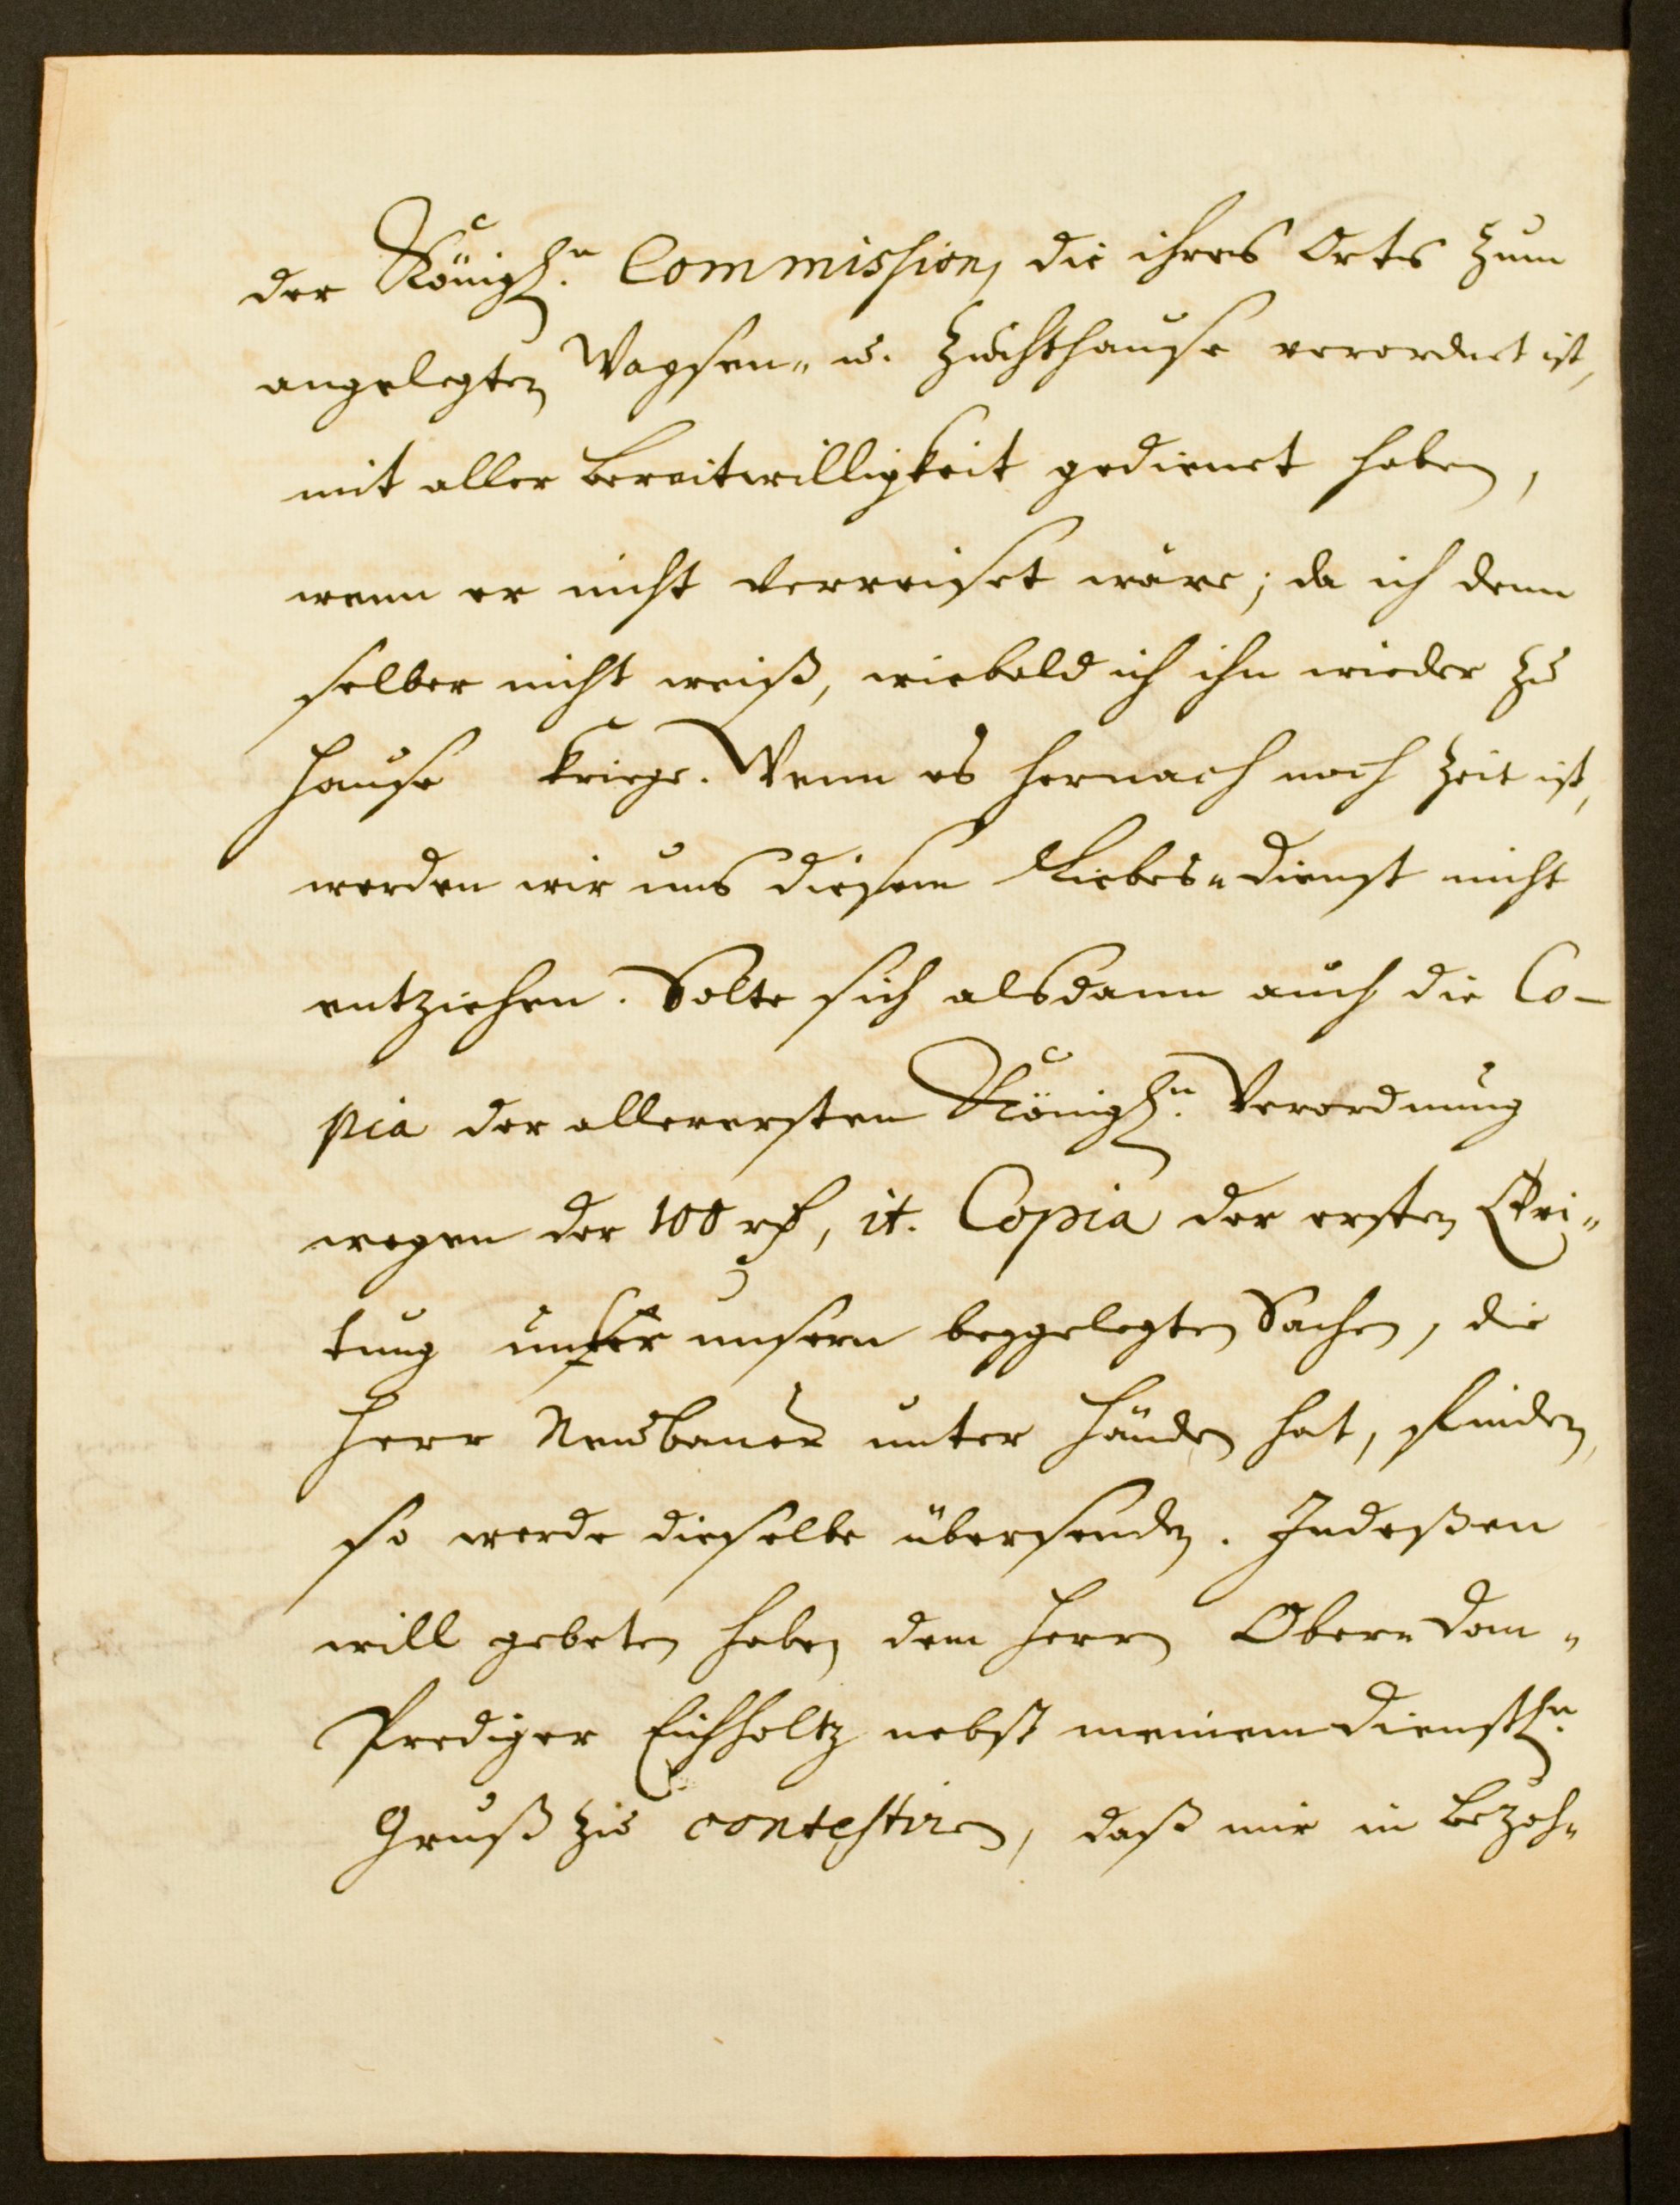 der Königl.n Commission, die ihres Orts zum
angelegten Waysen- u. Zuchthause verordnet ist,
mit aller bereitwilligkeit gedienet haben,
wenn er nicht verreiset wäre; da ich denn
selber nicht weiß, wiebald ich ihn wieder zu
Hause kriege. Wenn es hernach noch Zeit ist,
werden wir uns diesem Liebes-dienst nicht
entziehen. Solte sich alsdann auch die Co-
pia der allerersten Königl.n Verordnung
wegen der 100 rthl, it. Copia der ersten
tung unter unsern beygelegten Sachen, die
Herr Neubauer unter Händen hat, finden,
so werde dieselbe übersenden. Indeßen
will gebeten haben dem Herrn Ober-Dom-
Prediger Eichholtz nebst meinem dienstl.n
Gruß zu contestiren, daß mir in bezah-